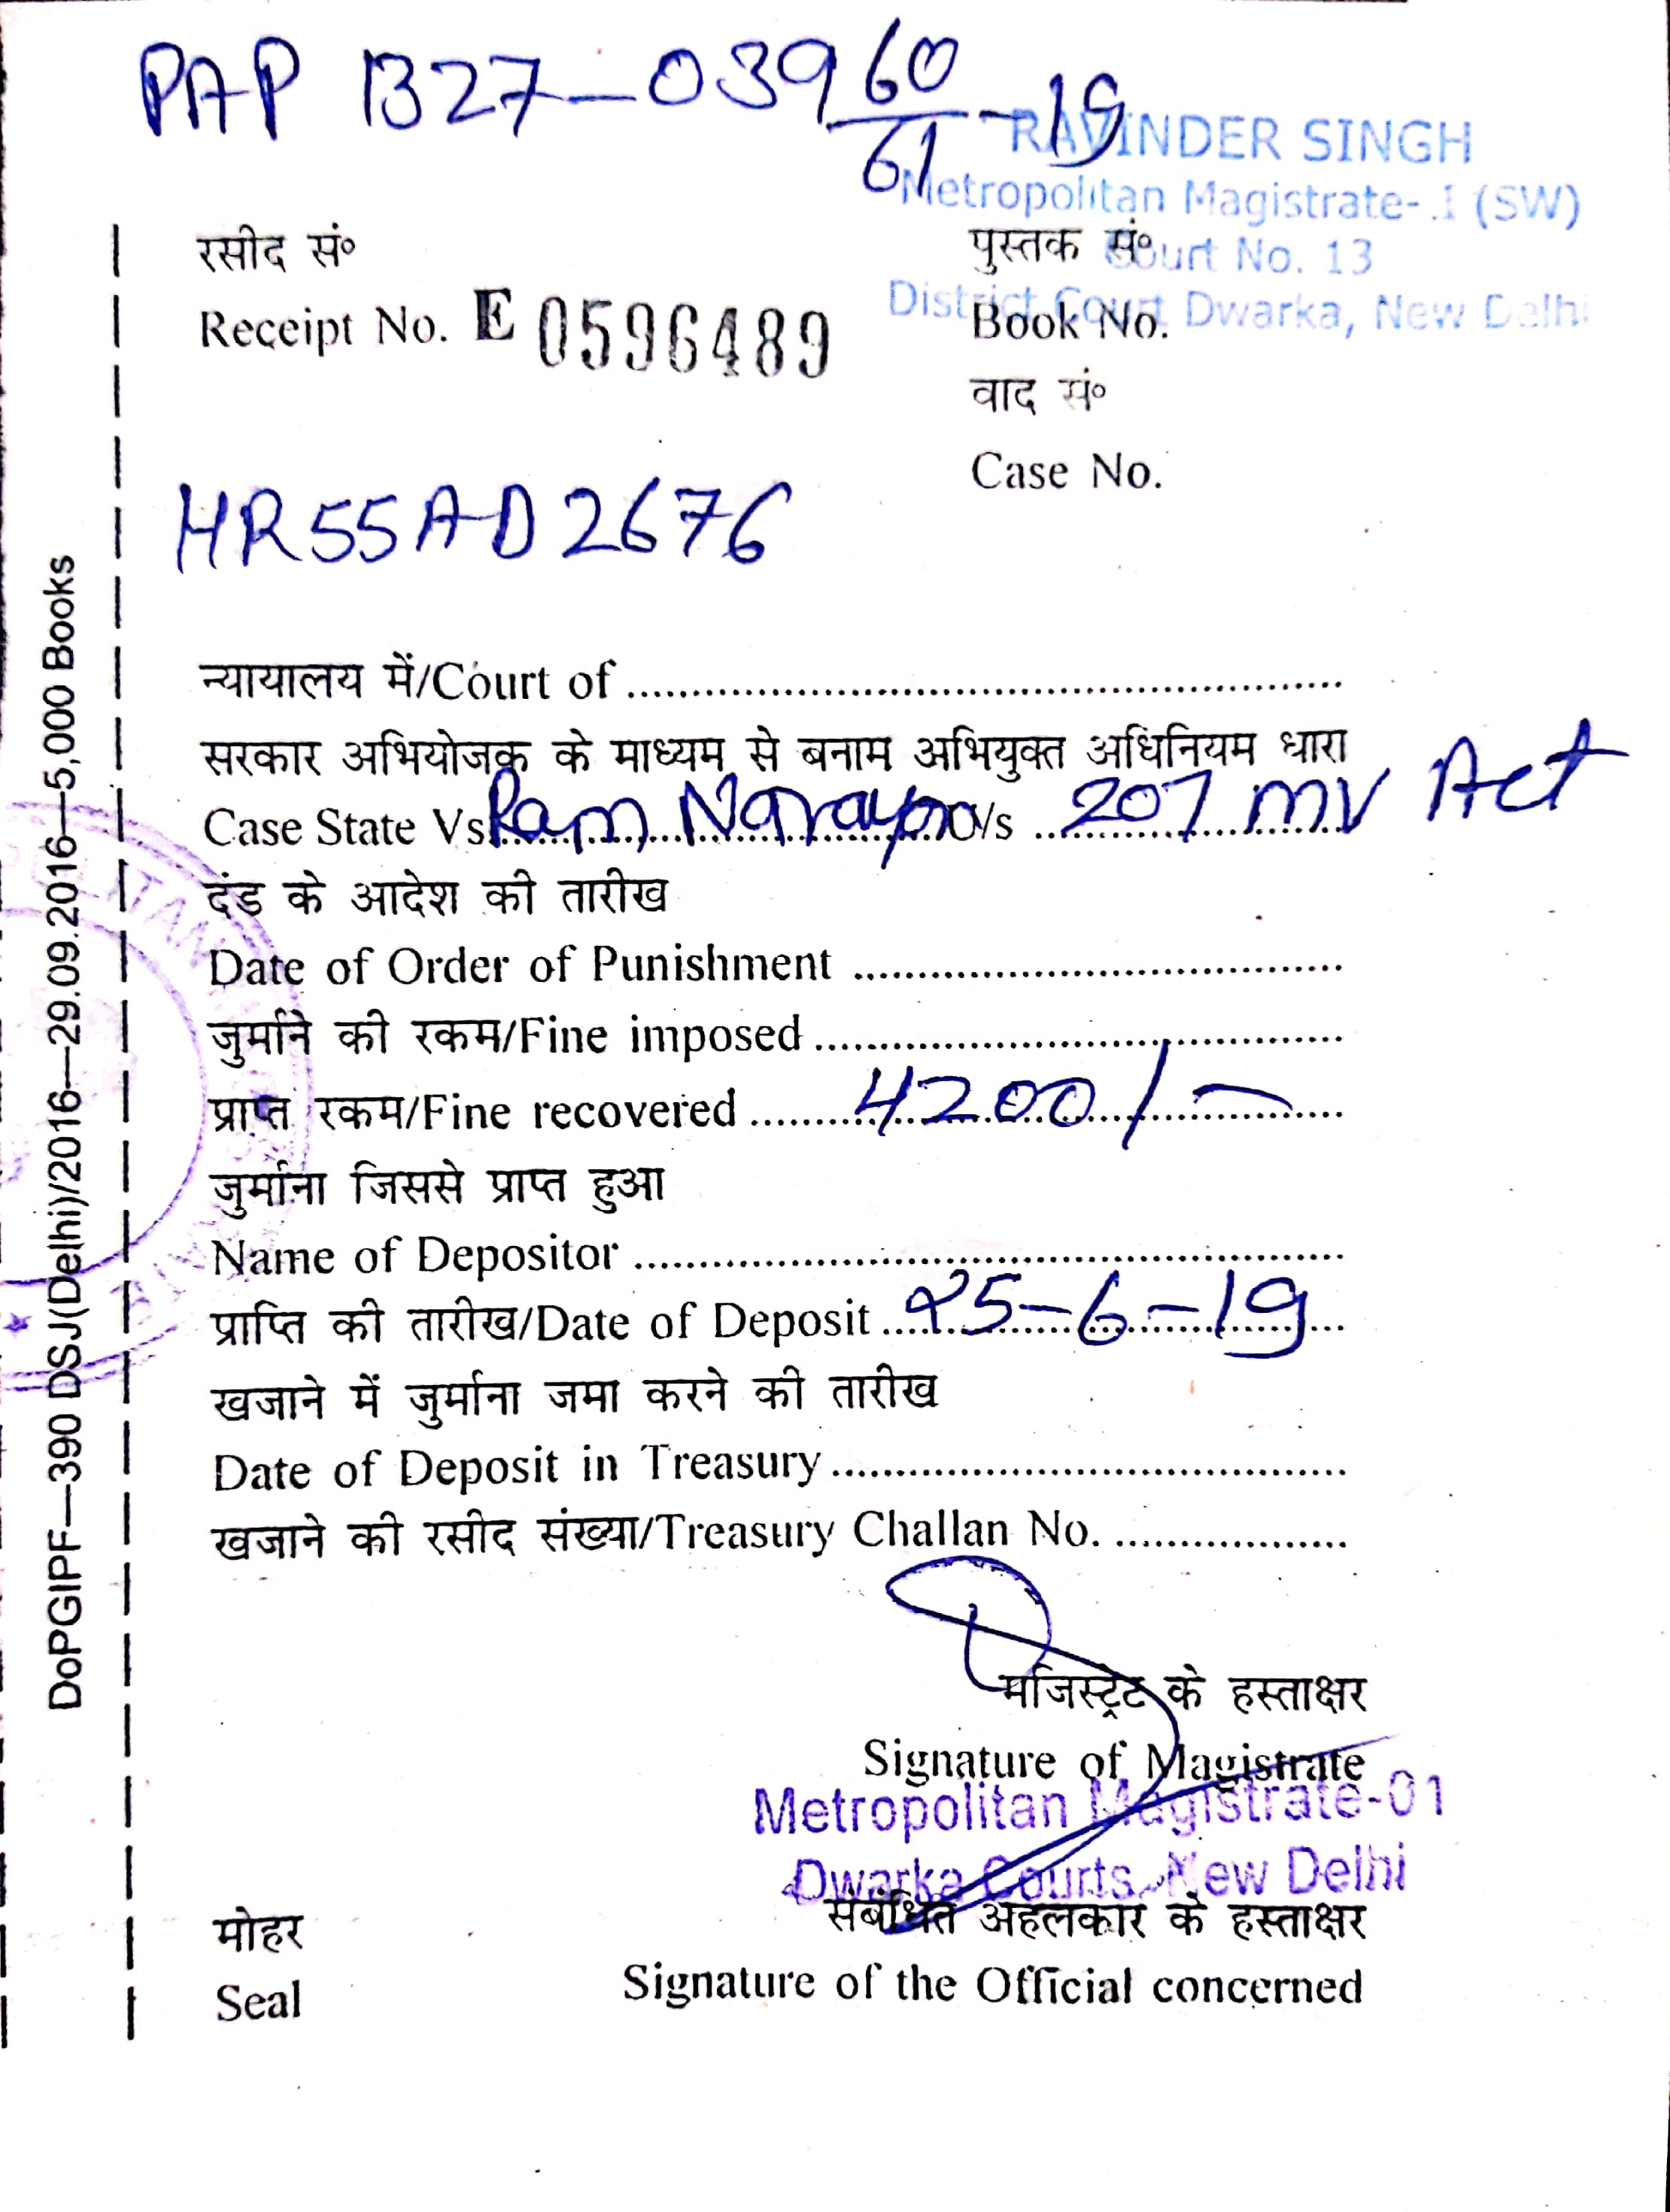 PAP 1327-039 60/61-19
RAVINDER SINGH
Metropolitan Magistrate- (SW)
Court No. 13
District Court Dwarka, New Delhi
रसीद सं०
Receipt No. E 0596489
पुस्तक सं०
Book No.
वाद सं०
Case No.
HR55AD2676
न्यायालय में/Court of
सरकार अभियोजक के माध्यम से बनाम अभियुक्त अधिनियम धारा
Case State Vs Ram Narayan U/s 207 MV Act
दंड के आदेश की तारीख
Date of Order of Punishment
जुर्माने की रकम/Fine imposed
प्राप्त रकम/Fine recovered 4200/-
जुर्माना जिससे प्राप्त हुआ
Name of Depositor
प्राप्ति की तारीख/Date of Deposit 25-6-19
खजाने में जुर्माना जमा करने की तारीख
Date of Deposit in Treasury
खजाने की रसीद संख्या/Treasury Challan No.
मजिस्ट्रेट के हस्ताक्षर
Signature of Magistrate
Metropolitan Magistrate-01
Dwarka Courts, New Delhi
संबंधित अहलकार के हस्ताक्षर
Signature of the Official concerned
मोहर
Seal
DoPGIPF—390 DSJ(Delhi)/2016—29.09.2016—5,000 Books